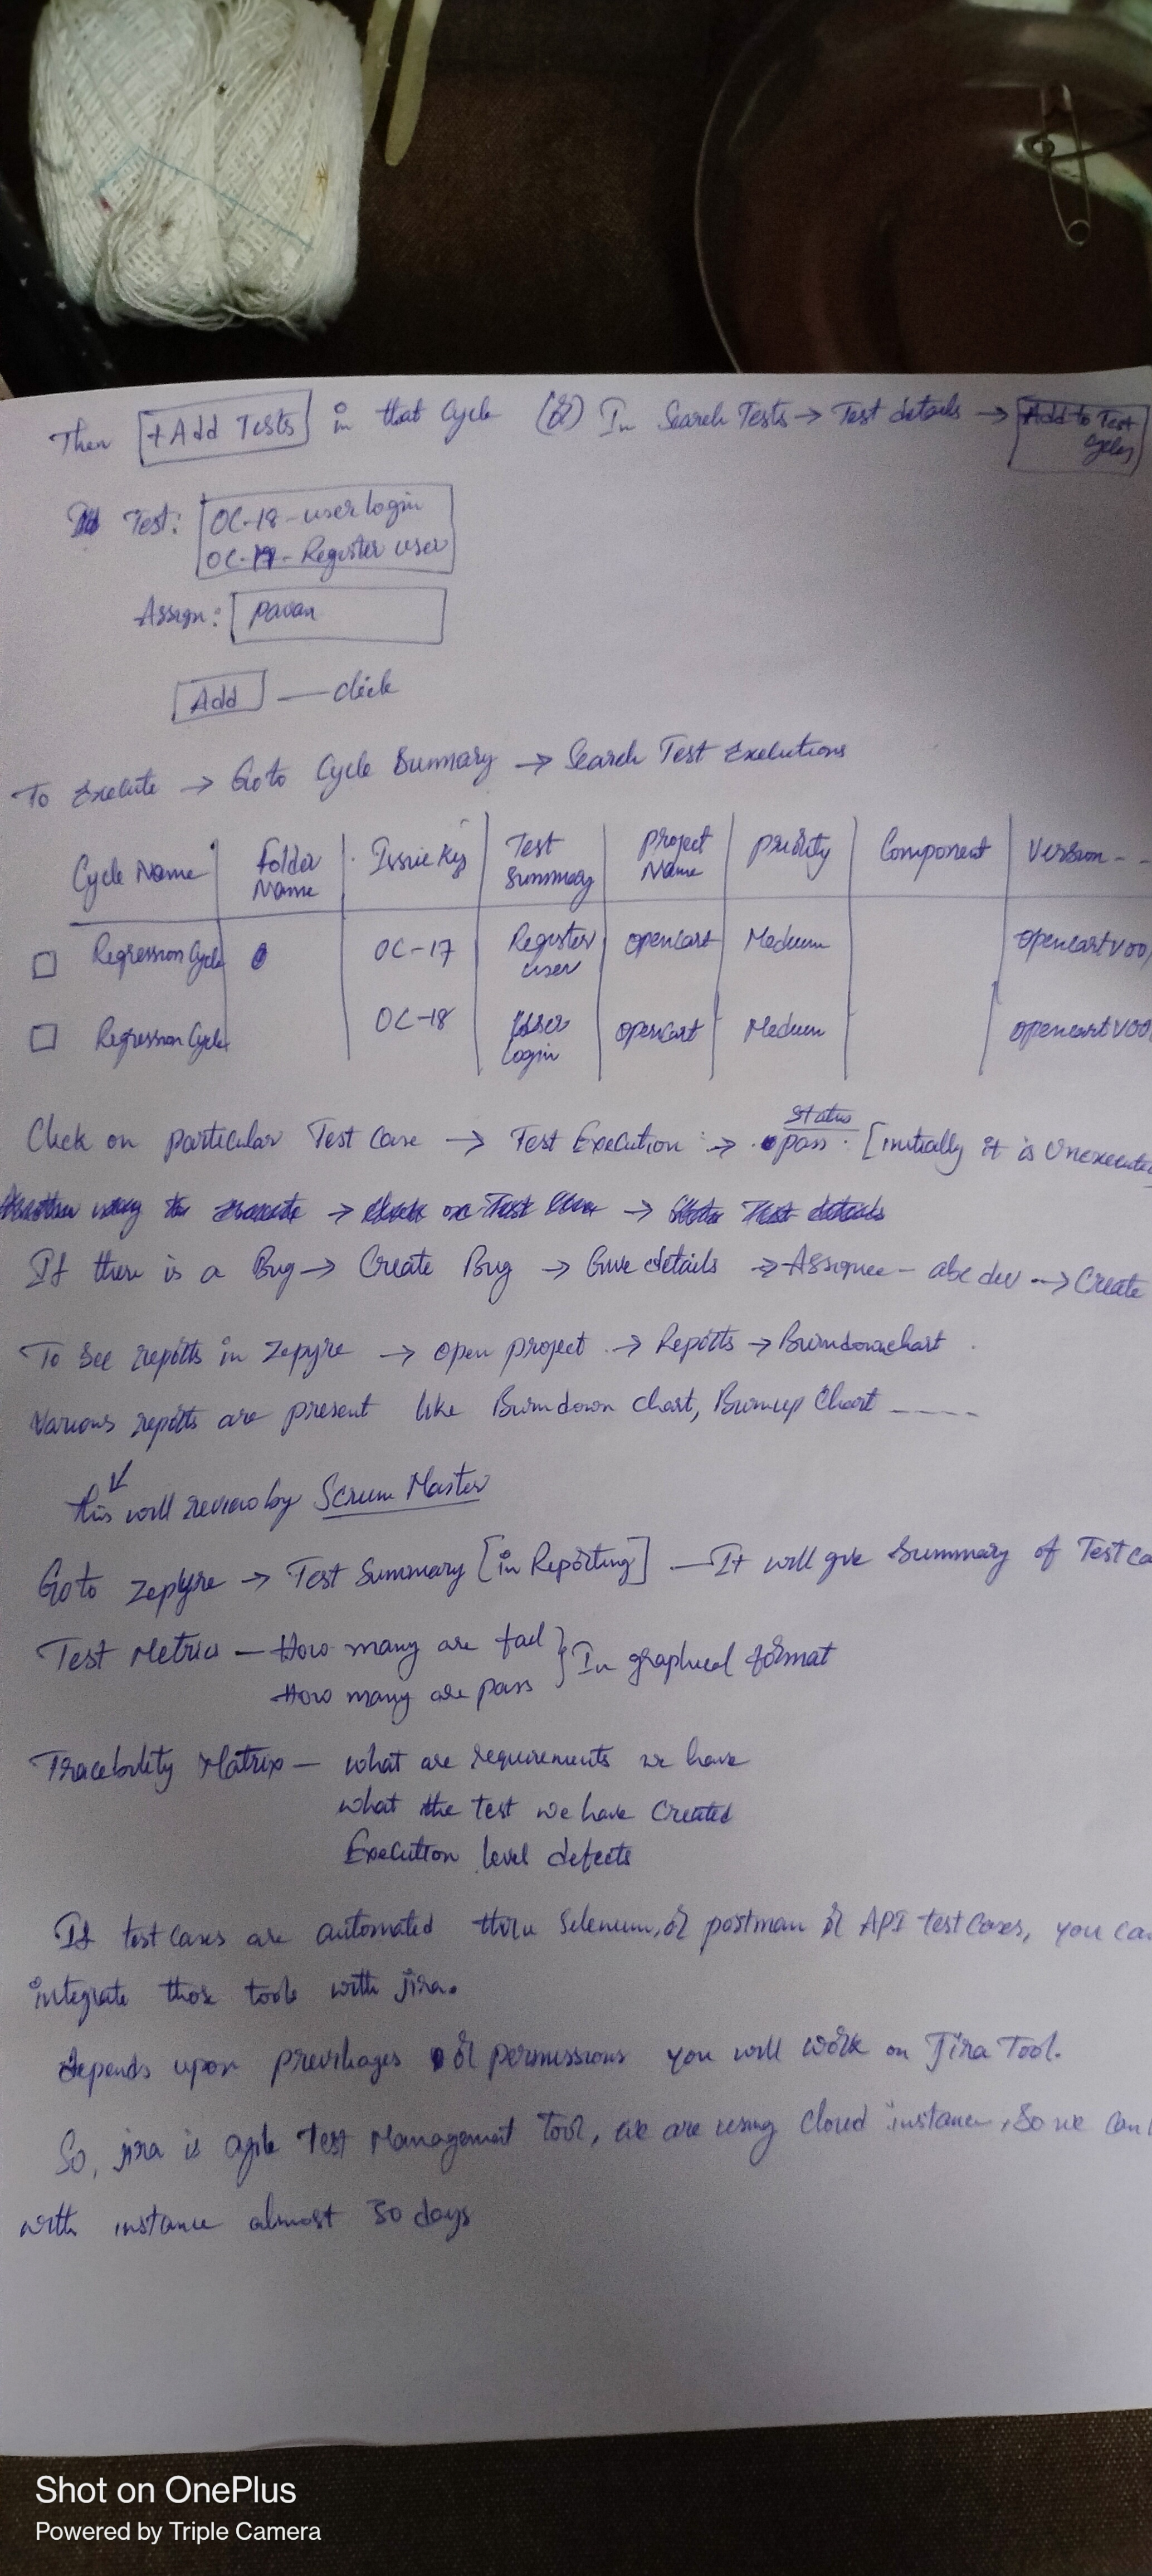 Then +Add Tests in that Cycle (or) In Search Tests → Test details → Add to Test
Cycles
Test: OC-18-user login
OC-17-Register user
Assign: pavan
Add — click
To Execute → Goto Cycle Summary → Search Test Executions
Cycle Name Folder Name Issue Key Test Summary Project Name Priority Component Version - -
Regression Cycle OC-17 Register user opencart Medium opencartV00
Regression Cycle OC-18 User login opencart Medium opencartV00
Status
Click on particular Test Case → Test Execution → pass [initially it is Unexecuted
If there is a Bug → Create Bug → Give details → Assignee - abc dev → Create
To See reports in Zepyre → open project → Reports → Burndownchart
Various reports are present like Burndown chart, Burnup Chart ----
This will review by Scrum Master
Goto Zephyre → Test Summary [in Reporting] — It will give Summary of Test ca
Test Metrics — How many are fail } In graphical format
How many are pass
Tracebility Matrix — what are requirements we have
what the test we have Created
Execution level defects
If test cases are automated thru Selenium, or postman or API test cases, you can
integrate those tools with jira.
depends upon previlages or permissions you will work on Jira Tool.
So, jira is agile Test Management Tool, we are using cloud instance, So we can
with instance almost 30 days
Shot on OnePlus
Powered by Triple Camera